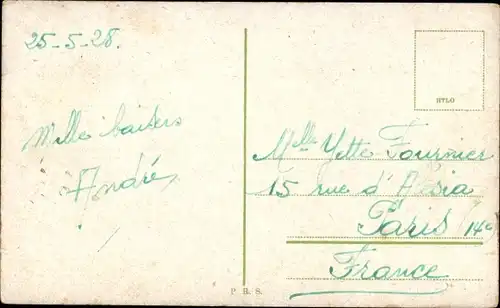 25-5-28.
Mille baisers
André
HYLO
Melle Yette Fournier
15 rue d'Alésia
Paris 14e
France
P. B. S.